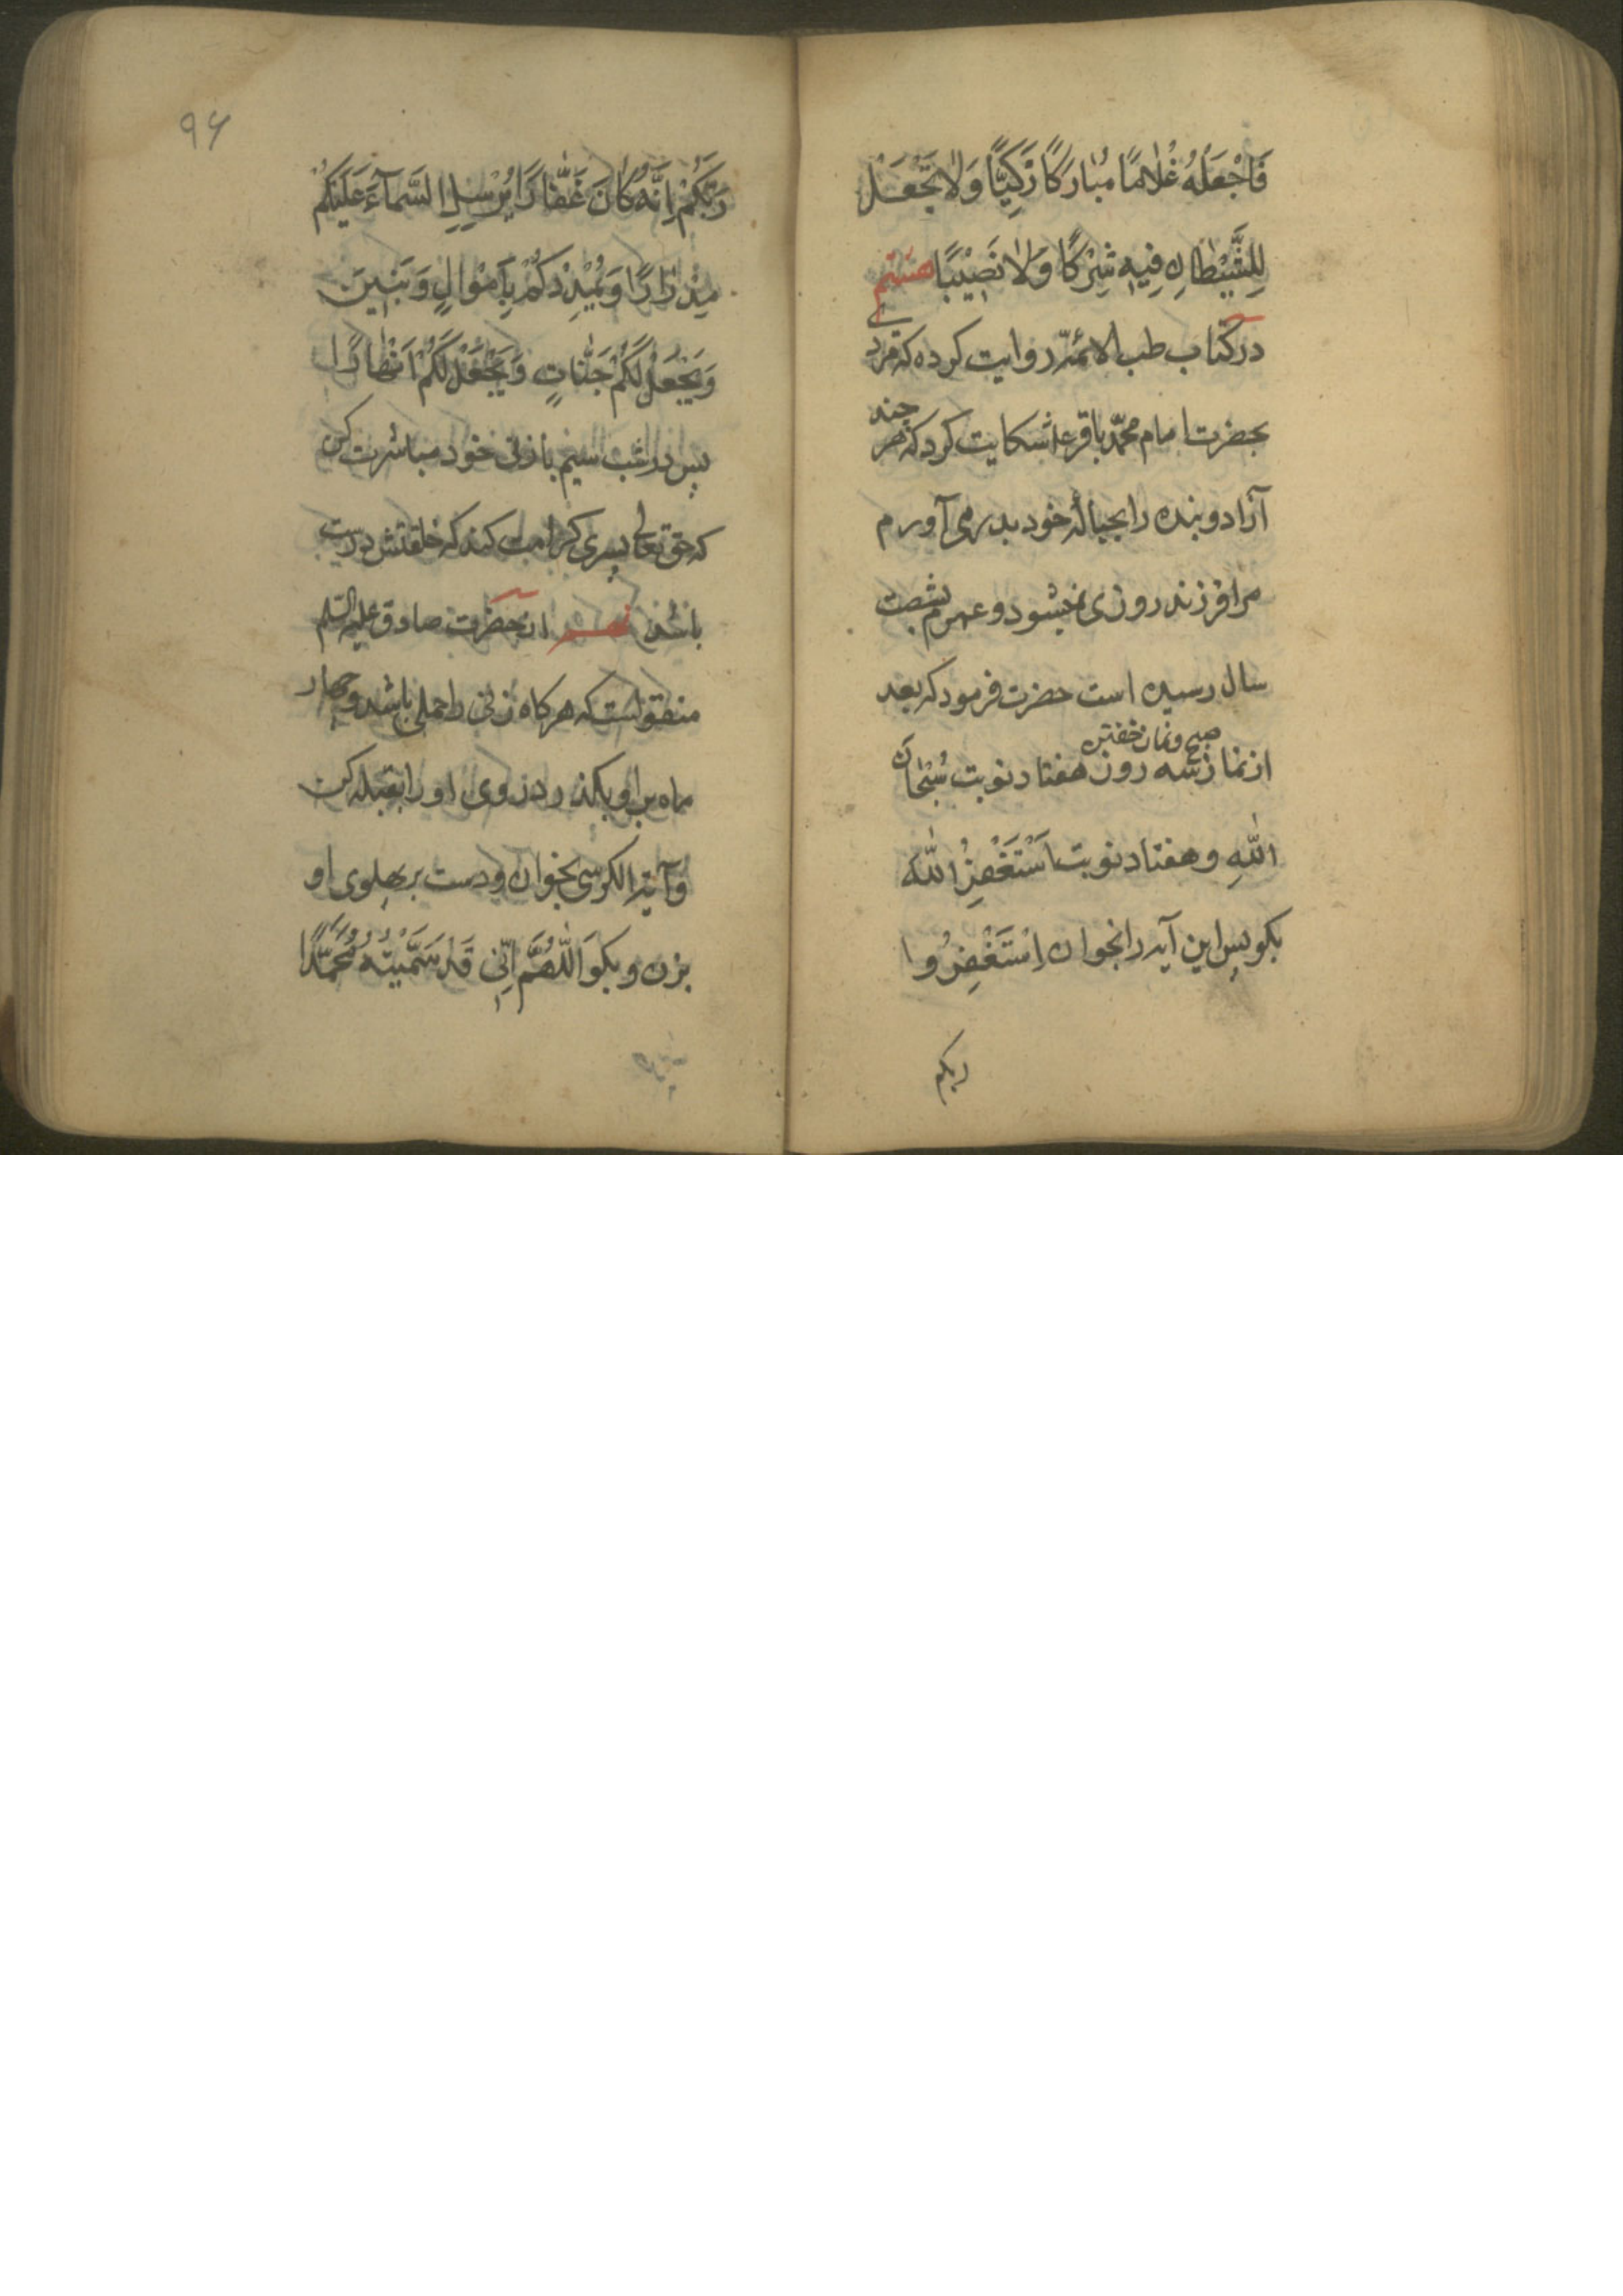 فَاجْعَلْهُ غُلَامًا مُبَارَكًا زَكِيًّا وَلَا تَجْعَلْ
لِلشَّيْطَانِ فِيهِ شِرْكًا وَلَا نَصِيْبًا هشتم
در كتاب طب الائمّه روايت كرده كه مردى
بحضرت امام محمّد باقر ع شكايت كرد كه هر چند
آزاد و بنده را بحبالهٔ خود بدر مى آورم
مرا فرزند روزى نميشود و عمرم بشصت
سال رسيده است حضرت فرمود كه بعد
صبح و نماز خفتن
از نماز سه روز هفتاد نوبت سُبْحَانَ
اللّٰهِ و هفتاد نوبت اَسْتَغْفِرُ اللّٰهَ
بكو پس اين آيه را بخوان اِسْتَغْفِرُوا
ربكم
۹۶
رَبَّكُمْ اِنَّهُ كَانَ غَفَّارًا يُرْسِلِ السَّمآءَ عَلَيْكُمْ
مِدْرَارًا وَيُمْدِدْكُمْ بِاَمْوَالٍ وَبَنِينَ
وَيَجْعَلْ لَكُمْ جَنَّاتٍ وَيَجْعَلْ لَكُمْ اَنْهَارًا
پس در شب سيم با زن خود مباشرت كن
كه حق تعالى پسرى كرامت كند كه خلقتش درست
باشد نهم از حضرت صادق عليه السّلم
منقولست كه هركاه زنى را حملى باشد و چهار
ماه بر او بكذرد روى او را بقبله كن
و آية الكرسى بخوان و دست بر پهلوى او
بزن و بكو اَللّٰهُمَّ اِنِّى قَدْ سَمَّيْتُهُ مُحَمَّدًا